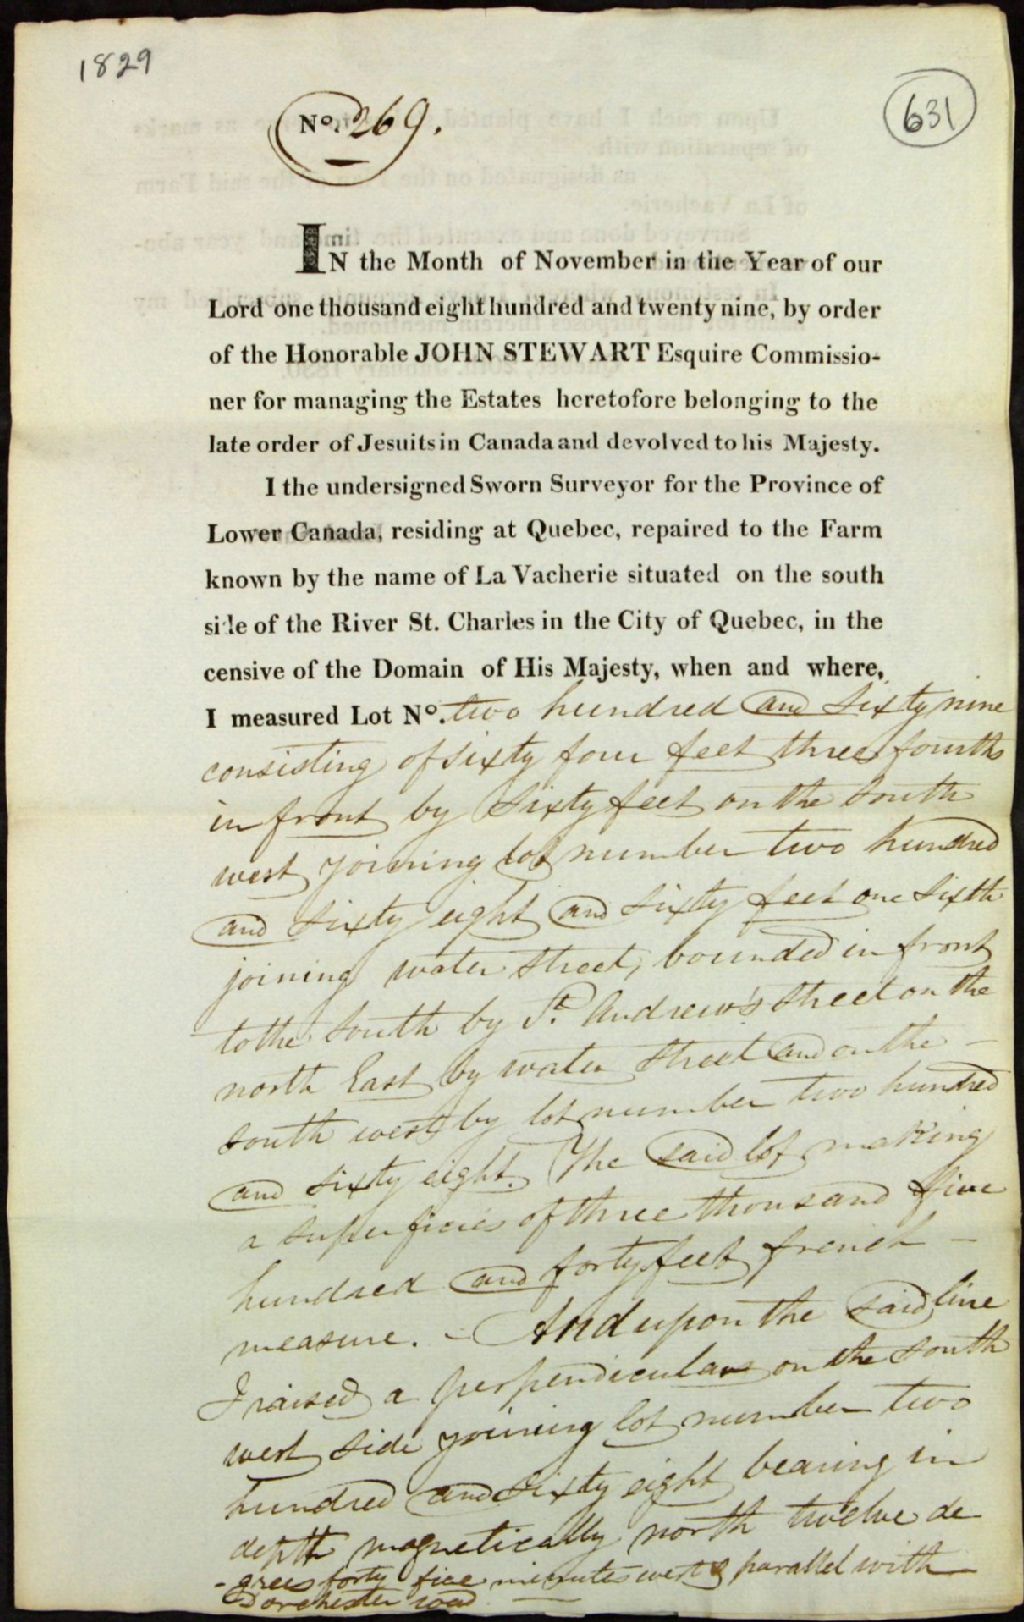 1829
631
No. 269.
IN the Month of November in the Year of our
Lord one thousand eight hundred and twenty nine, by order
of the Honorable JOHN STEWART Esquire Commissio-
ner for managing the Estates heretofore belonging to the
late order of Jesuits in Canada and devolved to his Majesty.
I the undersigned Sworn Surveyor for the Province of
Lower Canada, residing at Quebec, repaired to the Farm
known by the name of La Vacherie situated on the south
side of the River St. Charles in the City of Quebec, in the
censive of the Domain of His Majesty, when and where,
I measured Lot No. two hundred and sixty nine
consisting of sixty four feet three fourths
in front by sixty feet on the south
west joining lot number two hundred
and sixty eight and sixty feet one sixth
joining water street, bounded in front
to the south by St. Andrew's street on the
north East by water street and on the -
south west by lot number two hundred
and sixty eight. The said lot making
a superficies of three thousand five
hundred and forty feet french -
measure. - And upon the said line
I raised a perpendicular on the south
west side joining lot number two
hundred and sixty eight bearing in
depth magnetically north twelve de
-grees forty five minutes west & parallel with
Dorchester road